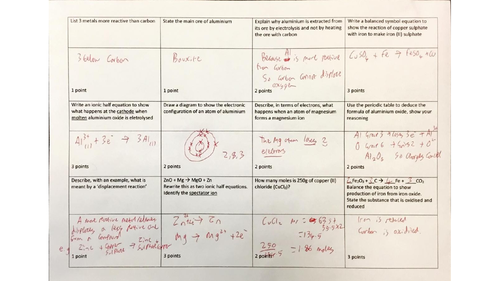 List 3 metals more reactive than carbon
3 below Carbon
1 point
State the main ore of aluminium
Bauxite
1 point
Explain why aluminium is extracted from
its ore by electrolysis and not by heating
the ore with carbon
Because Al is more reactive
from Carbon
So Carbon cannot displace
oxygen
2 points
Write a balanced symbol equation to
show the reaction of copper sulphate
with iron to make iron (II) sulphate
CuSO4 + Fe → FeSO4 + Cu
2 points
Write an ionic half equation to show
what happens at the cathode when
molten aluminium oxide is eletrolysed
Al3+ + 3e- → Al
3 points
Draw a diagram to show the electronic
configuration of an atom of aluminium
2,8,3
2 points
Describe, in terms of electrons, what
happens when an atom of magnesium
forms a magnesium ion
The Mg atom loses 2
electrons
2 points
Use the periodic table to deduce the
formula of aluminium oxide, show your
reasoning
Al2O3 So charges cancel
2 points
Describe, with an example, what is
meant by a 'displacement reaction'
A more reactive metal
displaces a less reactive one
from a compound
e.g Zinc + copper sulphate → Zinc sulphate
1 point
ZnO + Mg → MgO + Zn
Rewrite this as two ionic half equations.
Identify the spectator ion
Zn2+ → Zn
Mg → Mg2+ + 2e-
3 points
How many moles is 250g of copper (II)
chloride (CuCl2)?
CuCl2 Mr = 63.5+
35.5x2
=134.5
= 1.86 moles
2 points
Fe2O3 + C → Fe + CO2
Balance the equation to show
production of iron from iron oxide.
State the substance that is oxidised and
reduced
Iron is reduced
Carbon is oxidised
3 points